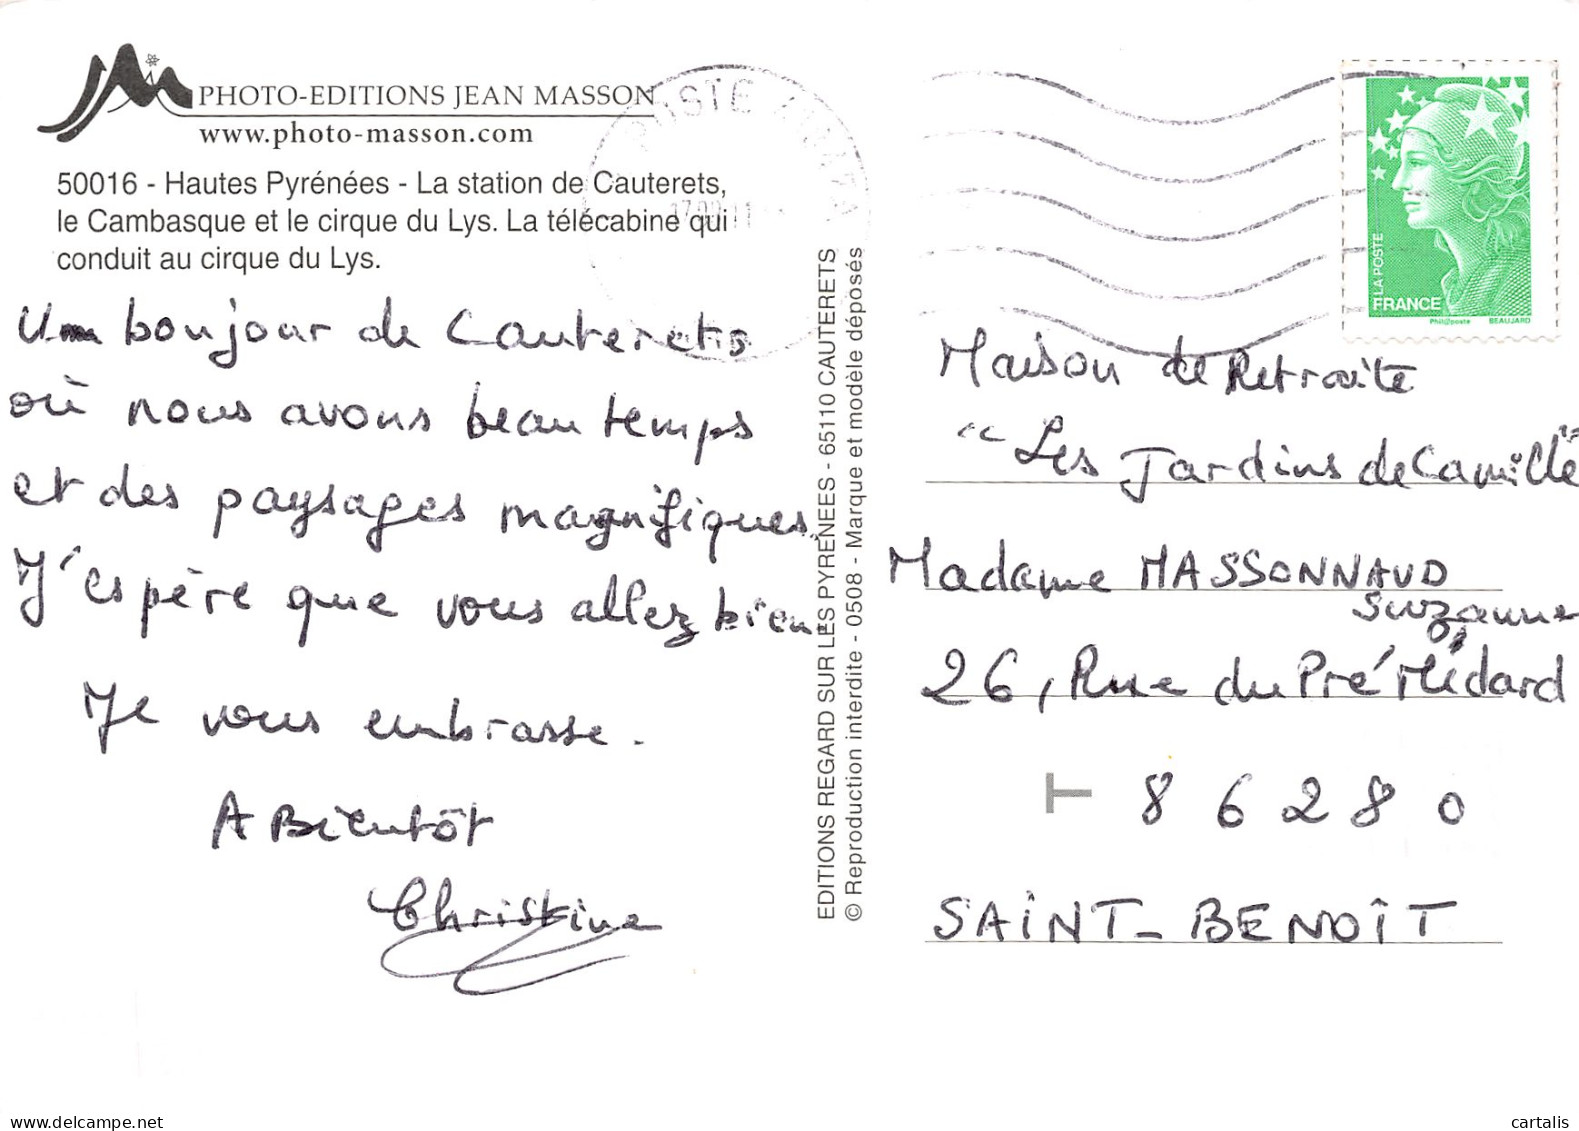 PHOTO-EDITIONS JEAN MASSON
www.photo-masson.com
50016 - Hautes Pyrénées - La station de Cauterets,
le Cambasque et le cirque du Lys. La télécabine qui
conduit au cirque du Lys.
Un bonjour de Cauterets
où nous avons beau temps
et des paysages magnifiques.
J'espère que vous allez bien.
Je vous embrasse.
A Bientôt
Christine
EDITIONS REGARD SUR LES PYRENEES - 65110 CAUTERETS
© Reproduction interdite - 0508 - Marque et modèle déposés
POSTE
LA POSTE
FRANCE
Phil@poste BEAUJARD
Maison de Retraite
"Les Jardins de Camille"
Madame MASSONNAUD
Suzanne
26, Rue du Pré Médard
T 86280
SAINT-BENOÎT
www.delcampe.net
cartalis